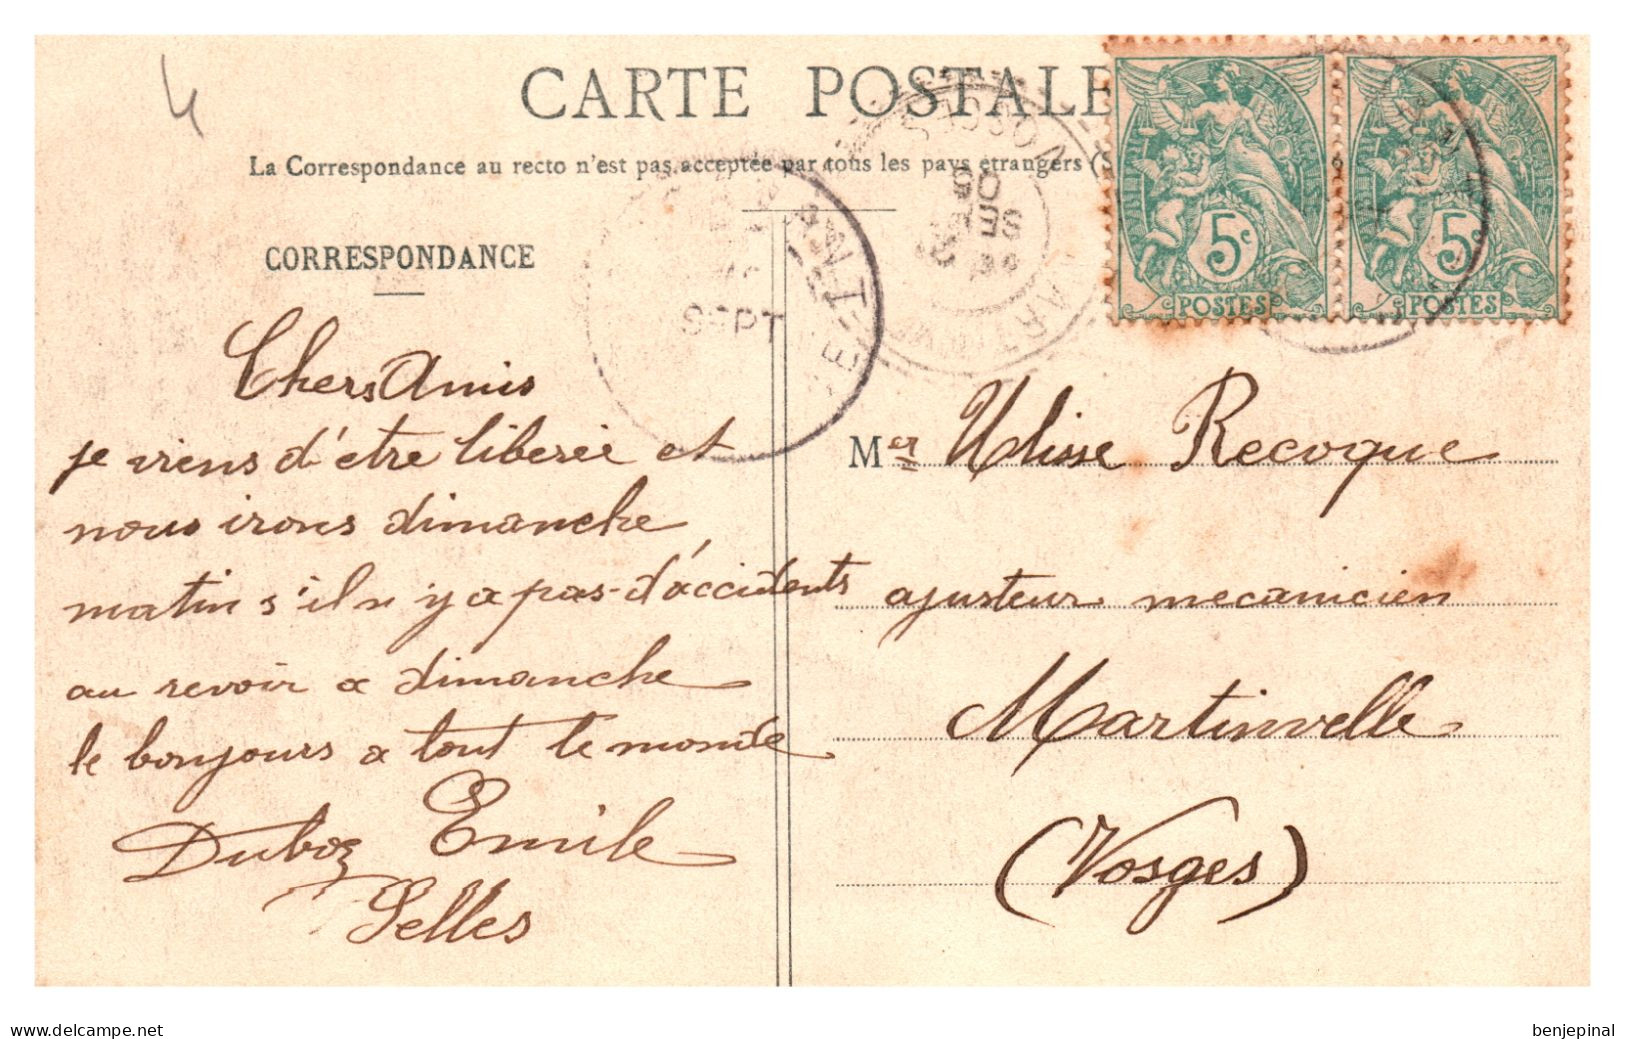 4
CARTE POSTALE
La Correspondance au recto n'est pas acceptée par tous les pays étrangers (S
CORRESPONDANCE
SEPT
VOSGES
MART
09
5c
POSTES
5c
POSTES
Chers Amis
je viens d'être liberée et
nous irons dimanche
matin s'il n'y a pas-d'accidents
au revoir a dimanche
le bonjours a tout le monde
Duboz Emile
Selles
Mer Ulisse Recoque
ajusteur mecanicien
Martinvelle
(Vosges)
www.delcampe.net
benjepinal